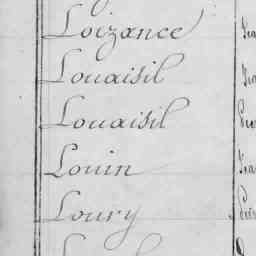 Loizance
Louaisil
Louaisil
Louin
Loury